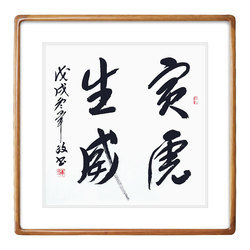 寅虎
生威
戊戌冬